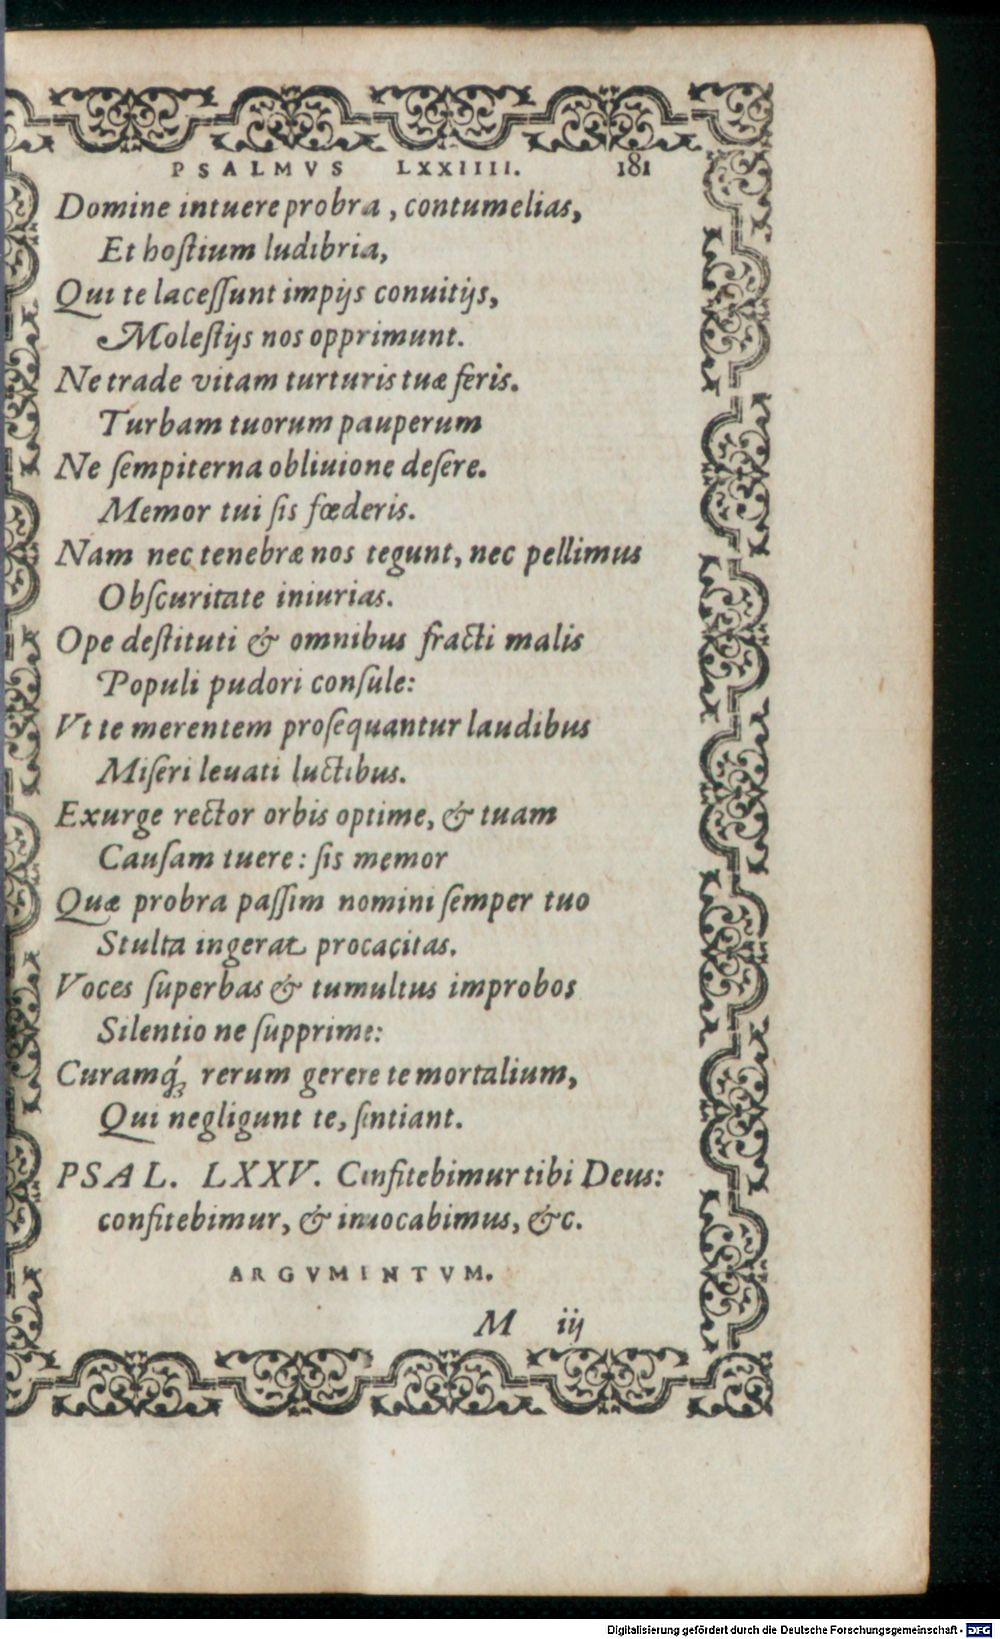 PSALMVS LXXIIII. 181
Domine intuere probra, contumelias,
Et hoſtium ludibria,
Qui te laceſſunt impijs conuitijs,
Moleſtijs nos opprimunt.
Ne trade vitam turturis tuæ feris.
Turbam tuorum pauperum
Ne ſempiterna obliuione deſere.
Memor tui ſis fœderis.
Nam nec tenebræ nos tegunt, nec pellimus
Obſcuritate iniurias.
Ope deſtituti & omnibus fracti malis
Populi pudori conſule:
Vt te merentem proſequantur laudibus
Miſeri leuati luctibus.
Exurge rector orbis optime, & tuam
Cauſam tuere: ſis memor
Quæ probra paſſim nomini ſemper tuo
Stulta ingerat procacitas.
Voces ſuperbas & tumultus improbos
Silentio ne ſupprime:
Curamq́; rerum gerere te mortalium,
Qui negligunt te, ſentiant.
PSAL. LXXV. Confitebimur tibi Deus:
confitebimur, & inuocabimus, &c.
ARGVMINTVM.
M iij
Digitalisierung gefördert durch die Deutsche Forschungsgemeinschaft - DFG